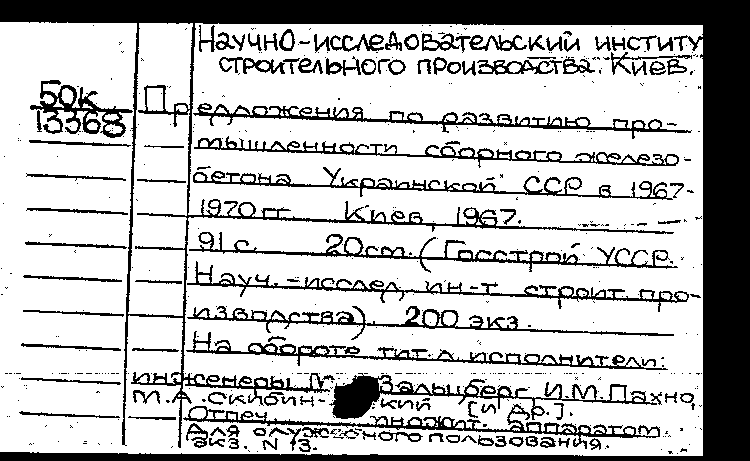 Научно-исследовательский институ
строительного производства. Киев.
50к
13368
Предложения по развитию про-
мышленности сборного железо-
бетона Украинской ССР в 1967-
1970 гг. Киев, 1967.
91 с. 20 cm. (Госстрой УССР.
Науч.-исслед. ин-т строит. про-
изводства). 200 экз.
На обороте тит. л. исполнители:
инженеры М. Зальцберг, И.М. Пахно,
М.А. Скибин- кий [и др.].
Отпеч. множит. аппаратом.
Для служебного пользования.
экз. N 13.